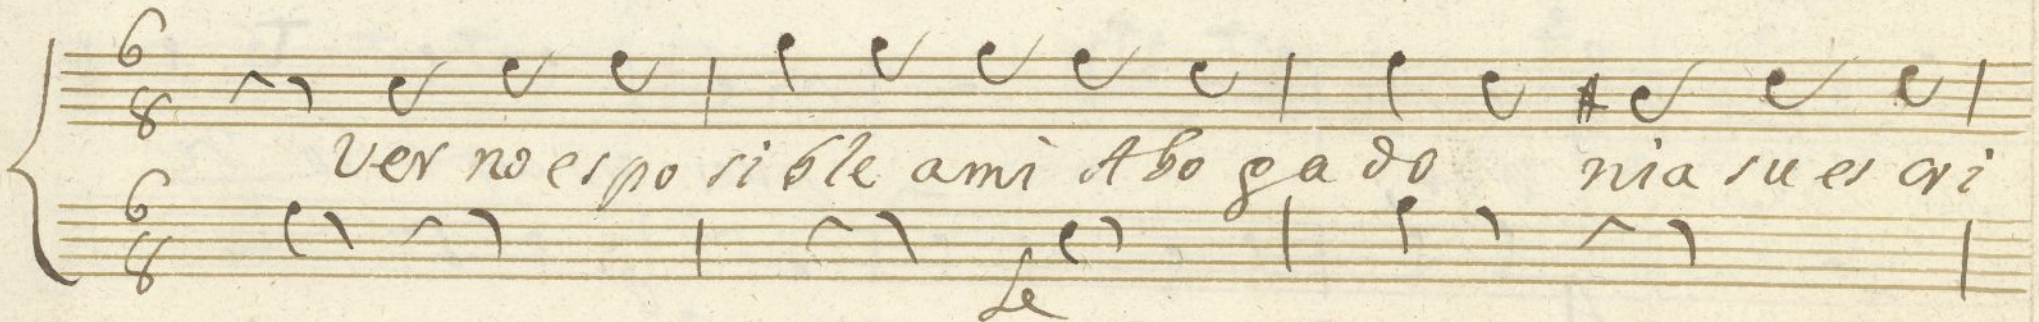 6
8
ver no es po si ble a mi Abo ga do ni a su es cri
6
8
Le